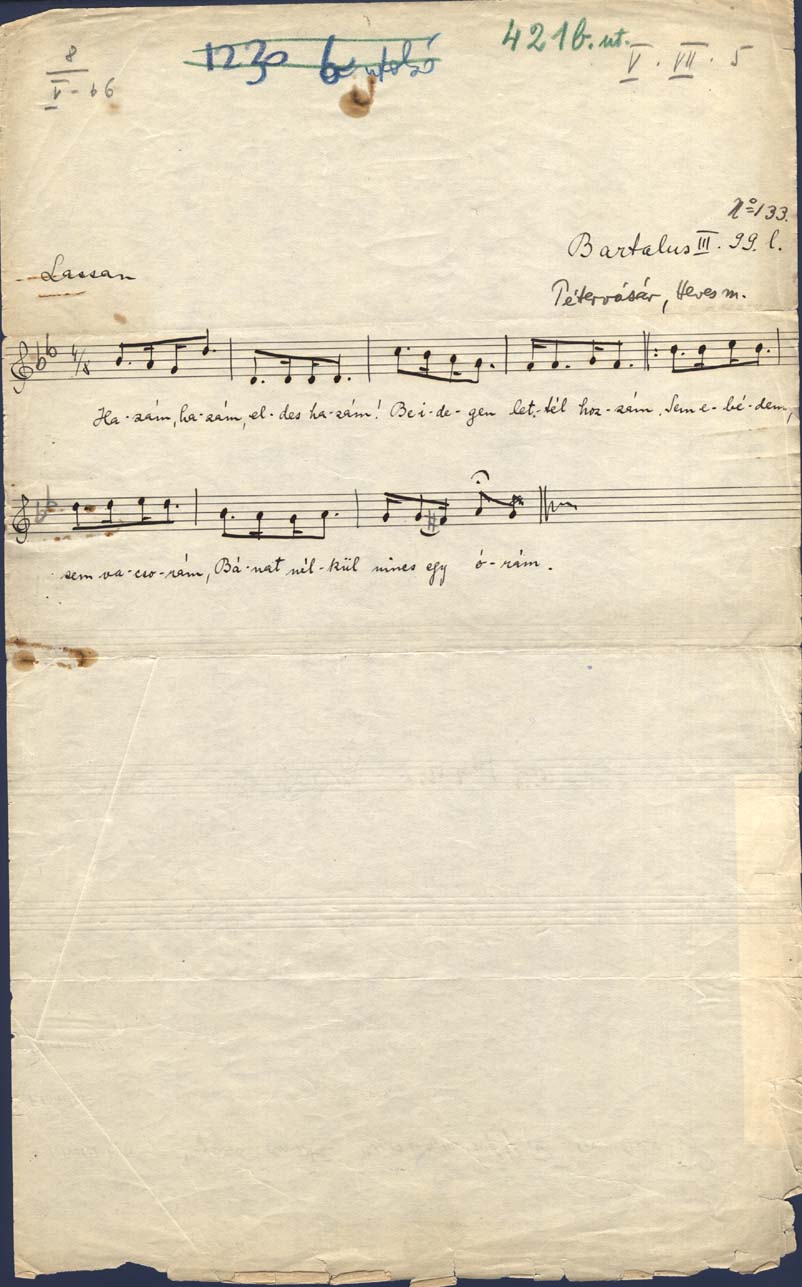 8
V - b6
1230 b utolsó
421 b. ut.
V. VII. 5
No 133.
Bartalus III. 99. l.
Lassan
Pétervásár, Heves m.
4/8
Ha-zám, ha-zám, el-des ha-zám! Be i-de-gen let-tél hoz-zám. Sem e-bé-dem,
sem va-cso-rám, Bá-nat nél-kül nincs egy ó-rám.